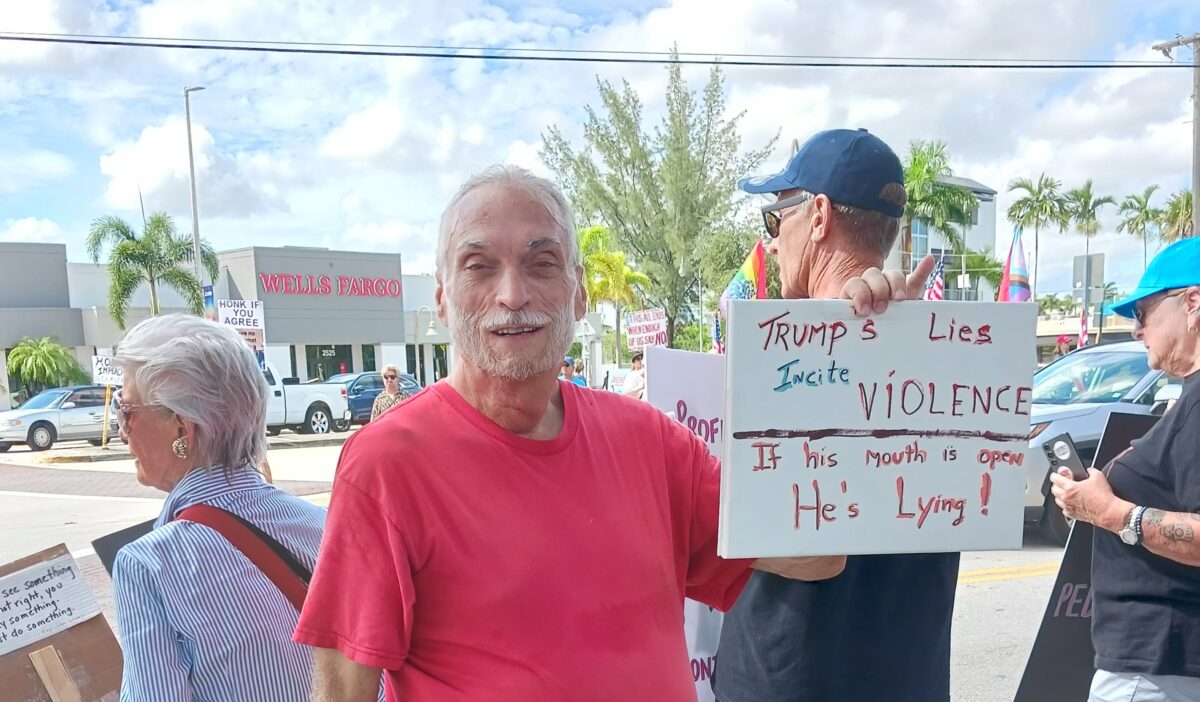 WELLS FARGO
2525
HONK IF
YOU
AGREE
THIS ALL ENDS
WHEN ENOUGH
OF US SAY NO!
TRUMP's Lies
Incite VIOLENCE
If his mouth is open
He's Lying!
see something
not right, you
say something.
do something.